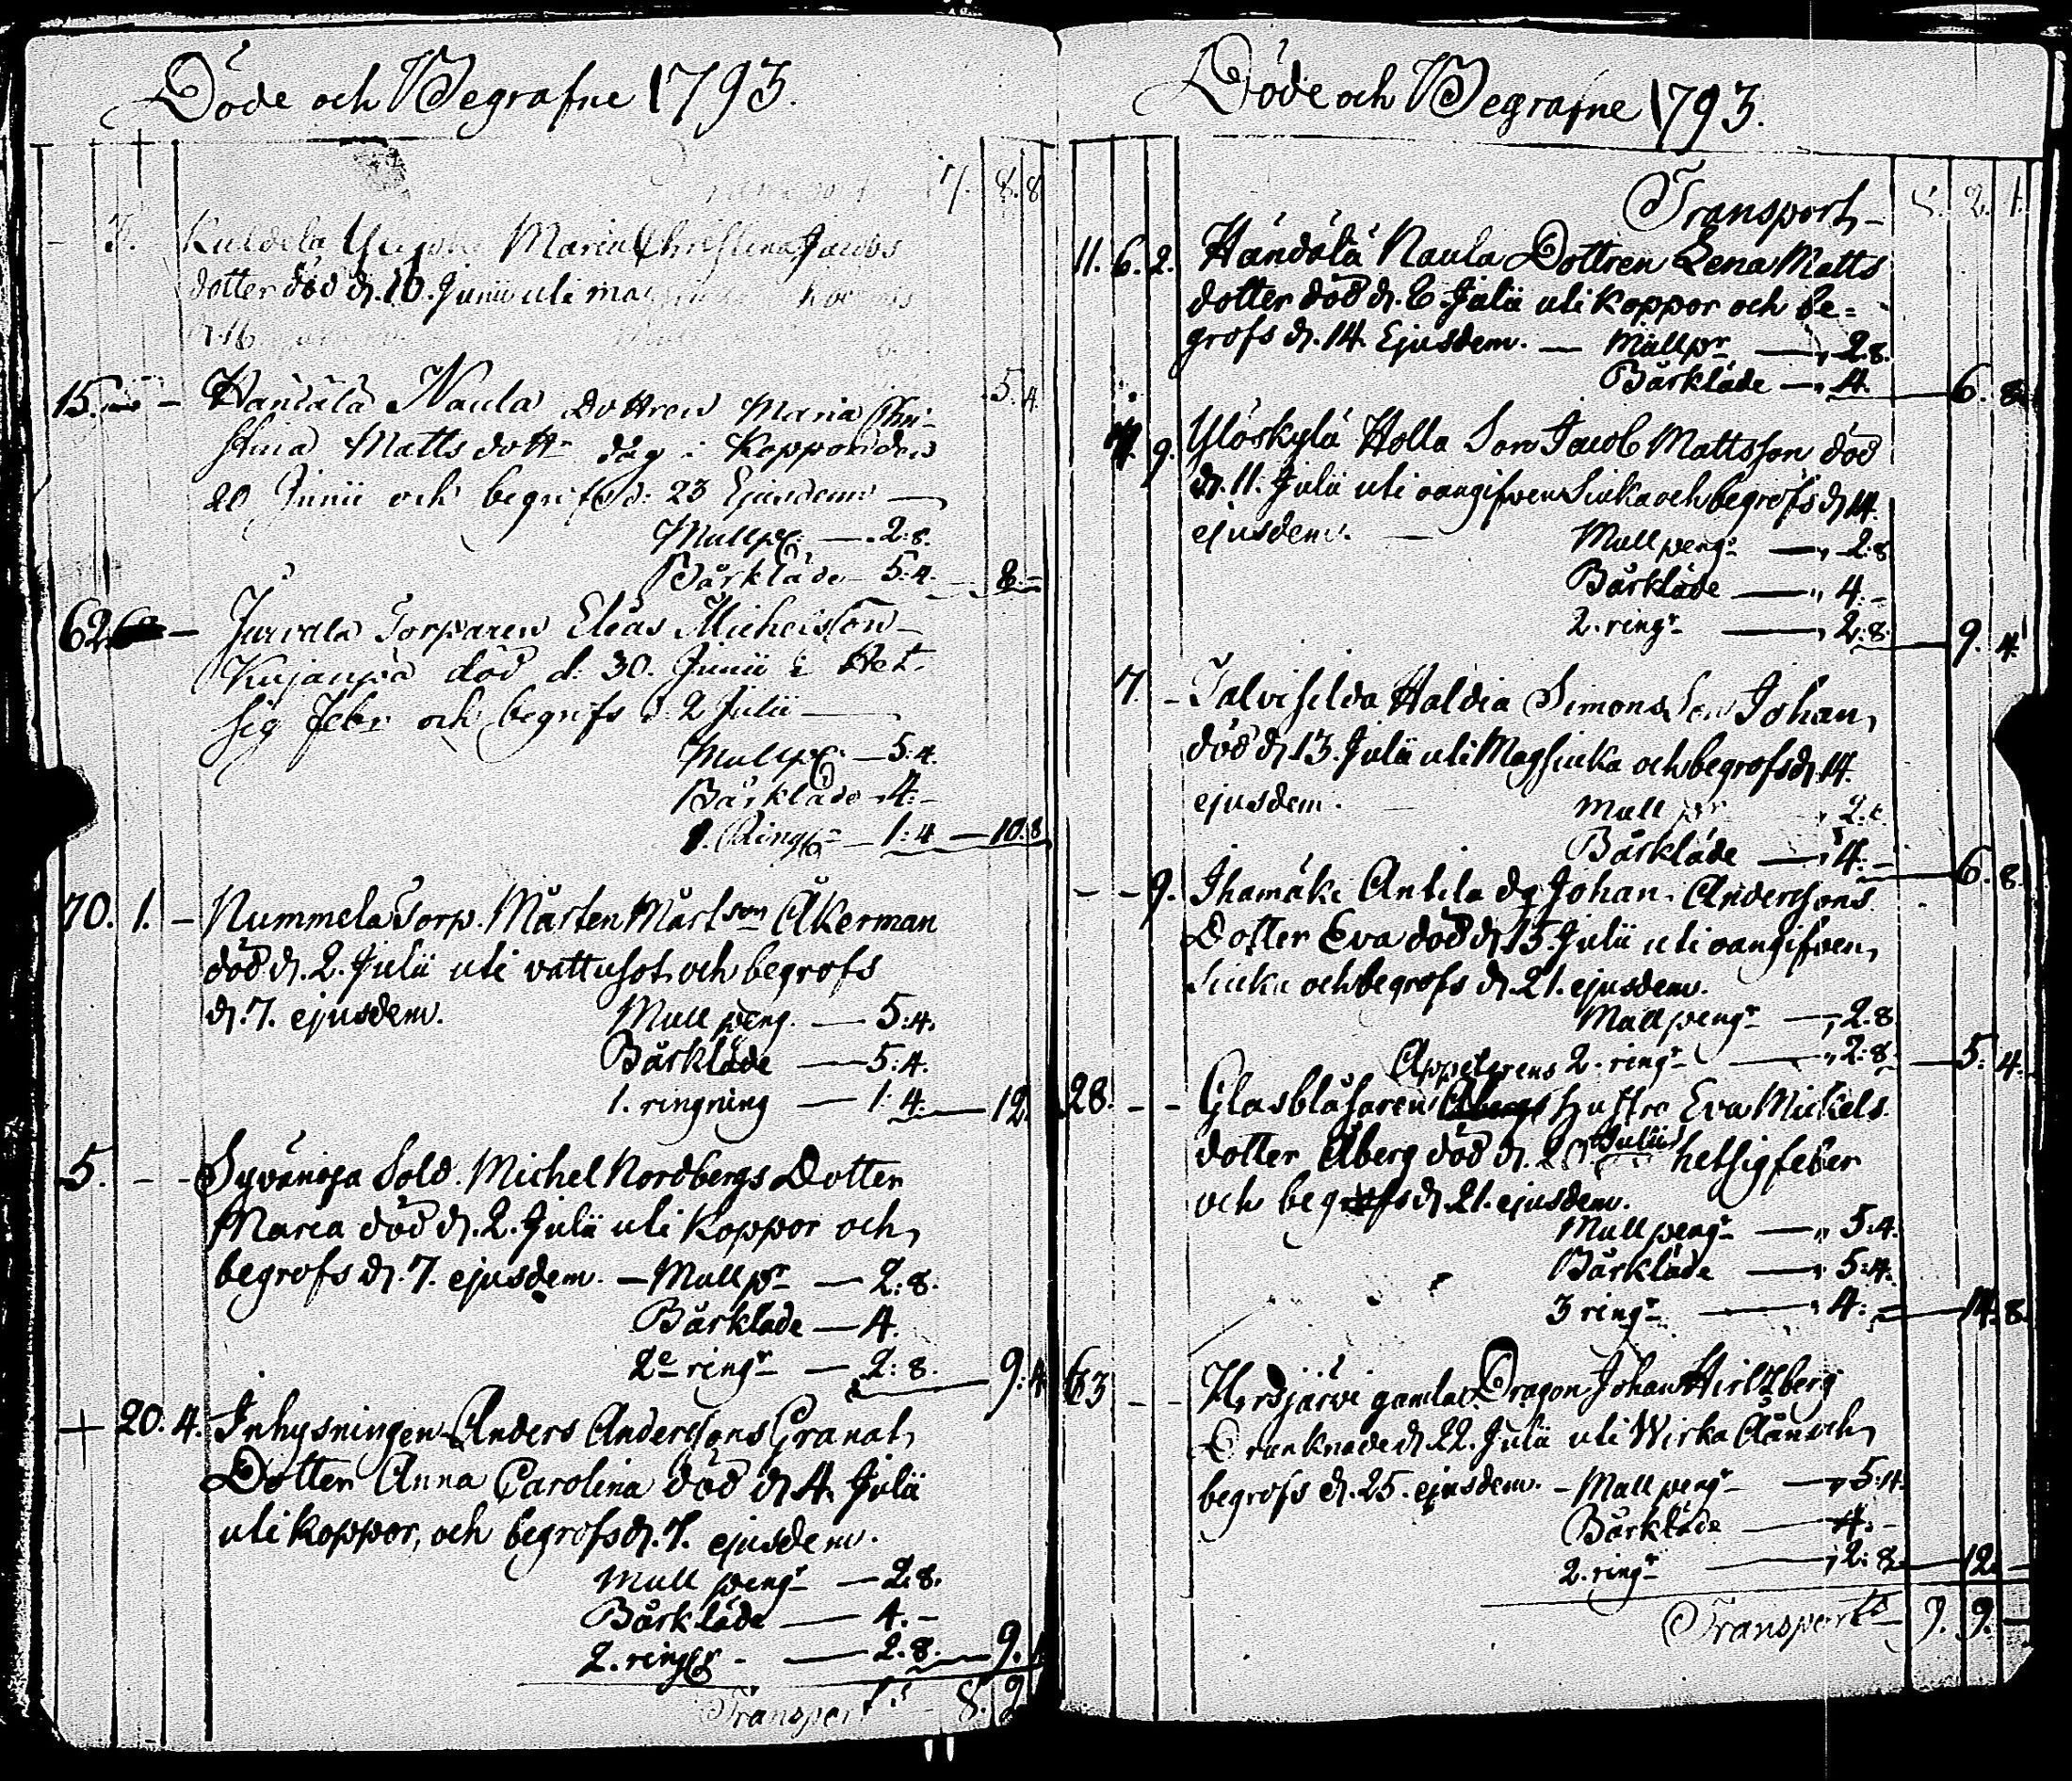 Döde och Begrafne 1793.
7. 8. 8
3. Kuldela Maria Christina Jacobs
dotter död d. 10. Junii uti
d. 16
5. 4.
15. - Handala Naula Dottren Maria Chri-
stina Matts dottr dog i Koppor den
20 Junii och begrofs d: 23 Ejusdem
Mullp. — 2:8.
Bårkläde — 5:4. — 8. -
62. - Juvala Torparen Elias Michelsson
Kujanpä död d. 30. Junii i Het-
sig Febr och begrofs d. 2 Julii
Mullp. — 5:4.
Bårkläde — 4: -
1. Ringn — 1:4 — 10. 8
70. 1. - Nummela Torp. Mårten Mårtson Åkerman
död d. 2. Julii uti vattusot och begrofs
d. 7. ejusdem. Mull peng. — 5:4.
Bårkläde — 5:4.
1. ringning — 1:4. — 12.
5. - - Syvänoja Sold. Michel Nordbergs Dotter
Maria död d. 2. Julii uti Koppor och
begrofs d. 7. ejusdem. — Mullpr — 2:8.
Bårkläde — 4.
2e ringr — 2:8. — 9. 4
+ 20. 4. Inhysningen Anders Anderssons Granat
Dotter Anna Carolina död d. 4. Julii
uti Koppor, och begrofs d. 7. ejusdem.
Mull pengr — 2:8.
Bårkläde — 4. -
2. ringr - — 2:8. — 9.
Transport 8. 2
Döde och Begrafne 1793.
Transport — 8. 2. 1.
11. 6. 2. Handala Naula Dottren Lena Matts
dotter död d. 6. Julii uti Koppor och be=
grofs d. 14. Ejusdem. — Mullpr — 2:8.
Bårkläde — 4. — 6. 8.
9. Ylöskylä Holla Son Jacob Mattsson död
d. 11. Julii uti oangifven Siuka och begrofs d. 14.
ejusdem. — Mull pengr — 2:8
Bårkläde — 4: -
2. ringr — 2:8. — 9. 4.
7. - Talviselda Haldia Simons Son Johan,
död d. 13. Julii uti Magsiuka och begrofs d. 14.
ejusdem. Mull pr 2:8.
Bårkläde — 4: - — 6. 8.
- - 9. Ihamäki Antila dg Johan Anderssons
Dotter Eva död d. 15. Julii uti oangifven,
Siuka och begrofs d. 21. ejusdem.
Mullpengr — 2:8
2. ringr — 2:8. — 5. 4.
28. - - Glasblåsaren Hustro Eva Mickels
dotter Åberg död d. 20 Julii hetsig feber
och begrofs d. 21. ejusdem.
Mull pengr — 5:4.
Bårkläde — 5:4.
3 ringr — 4: - — 14. 8.
63 - - Hirsjärvi gamla Dragon Johan Hirltzberg
Drunknade d. 22. Julii uti Wirka Åån och
begrofs d. 25. ejusdem. — Mull pengr — 5:4.
Bårkläde — 4. -
2. ringr — 2:8. — 12. -
Transport 9. 9. -